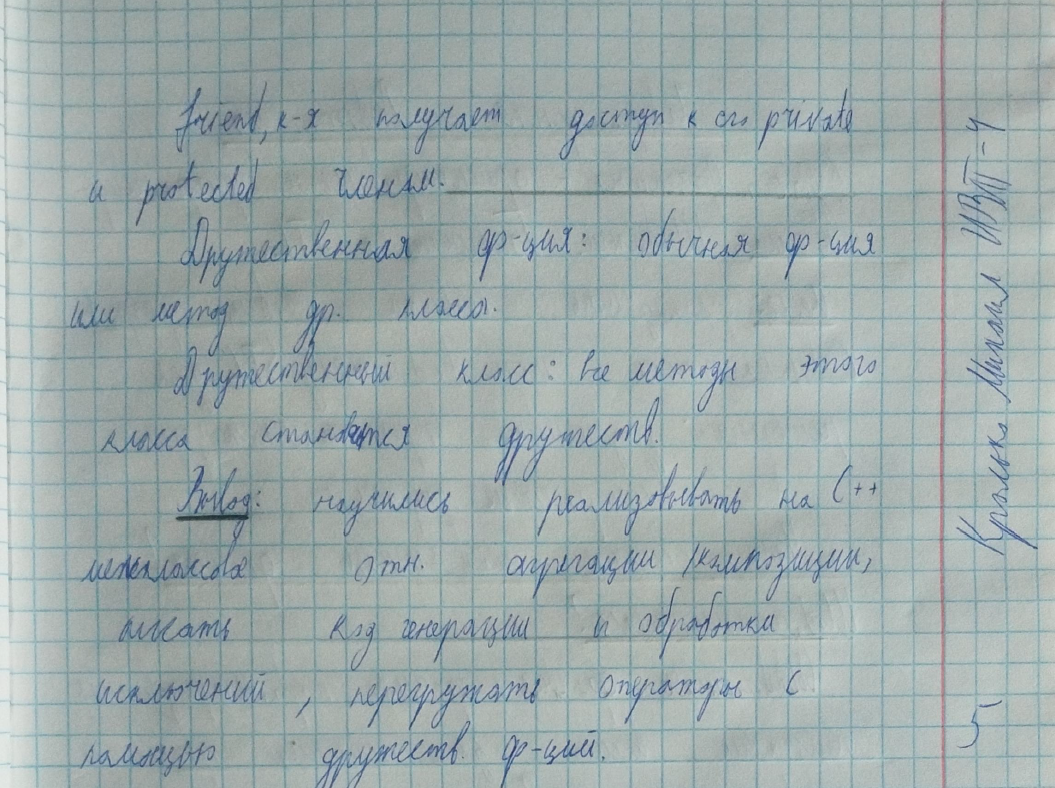 friend, к-я получает доступ к его private
и protected членам.
Дружественная ф-ция: обычная ф-ция
или метод др. класса.
Дружественный класс: все методы этого
класса становятся дружеств.
Вывод: научились реализовывать на C++
межклассовые отн. агрегации /композиции,
писать код генерации и обработки
исключений, перегружать операторы с
помощью дружеств. ф-ций.
Кралько Михаил ИВТП-4
5